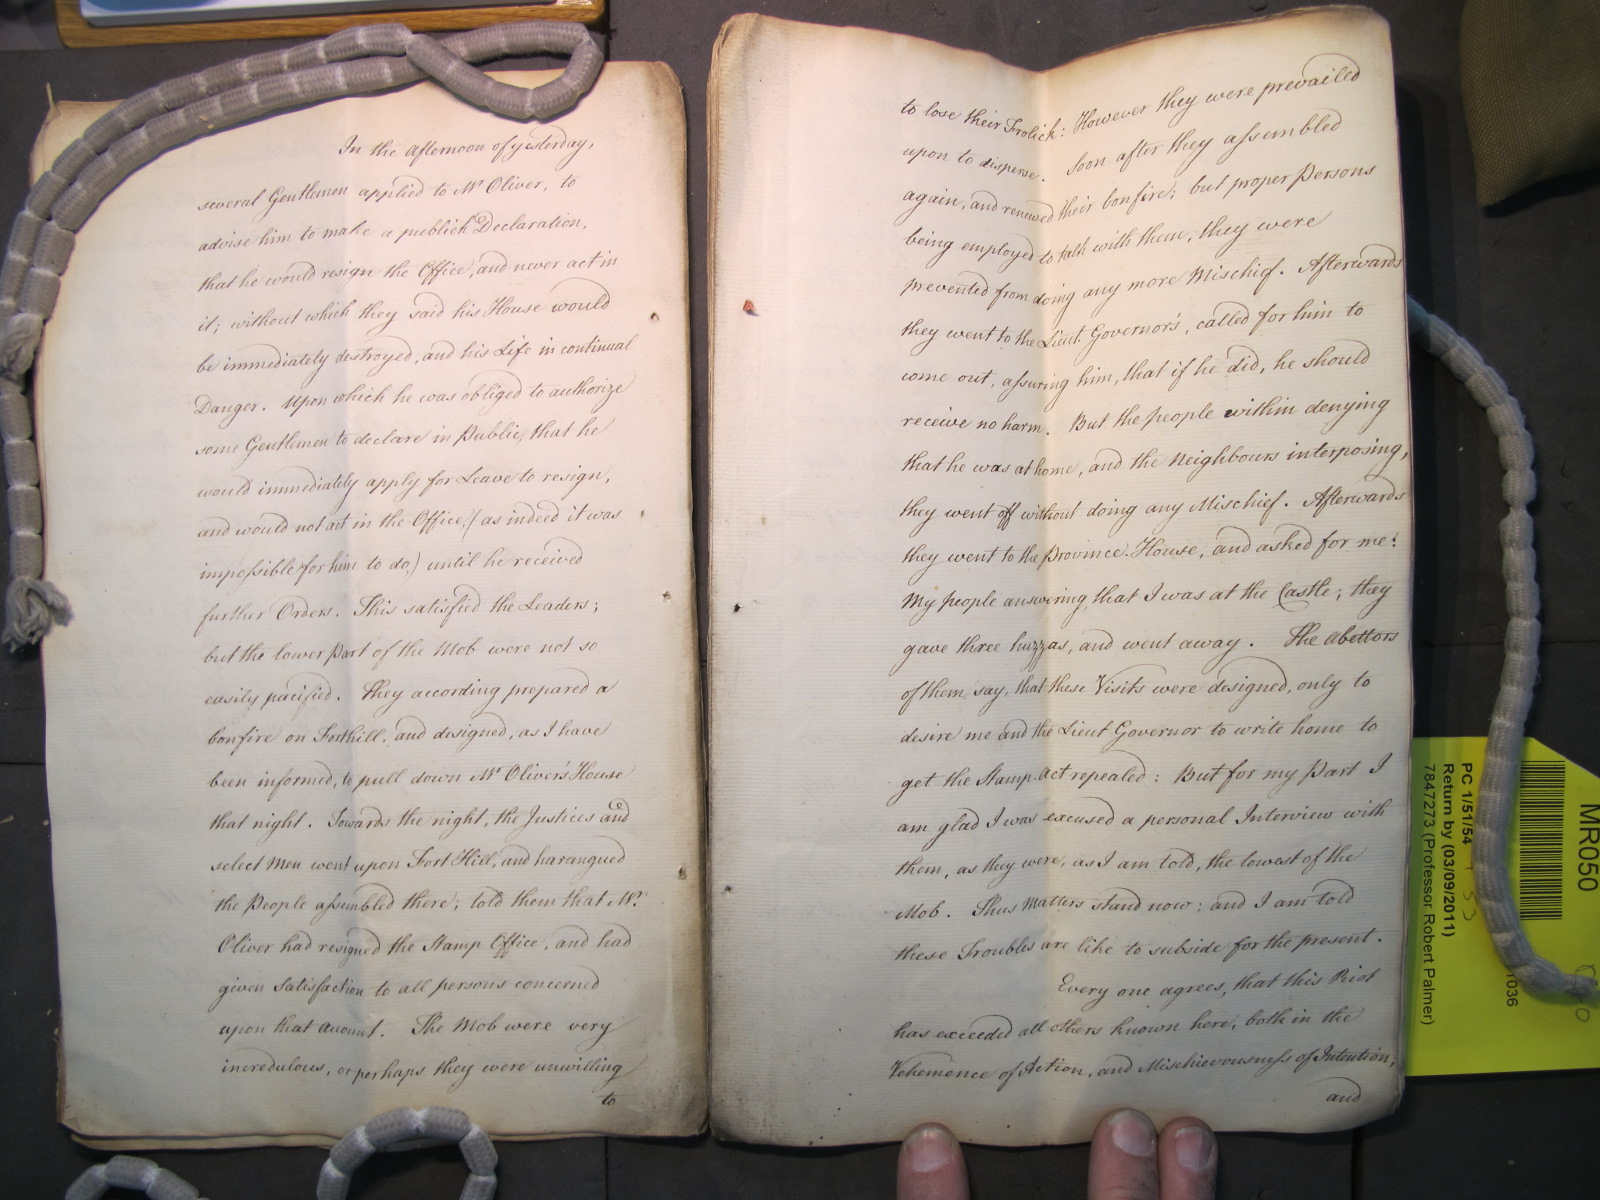 In the Afternoon of yesterday,
several Gentlemen applied to Mr Oliver, to
advise him to make a publick Declaration,
that he would resign the Office, and never act in
it; without which they said his House would
be immediately destroyed, and his Life in continual
Danger. Upon which he was obliged to authorize
some Gentlemen to declare in Public, that he
would immediately apply for Leave to resign,
and would not act in the Office, (as indeed it was
impossible for him to do,) until he received
further Orders. This satisfied the Leaders;
but the lower Part of the Mob were not so
easily pacified. They according prepared a
bonfire on Forthill, and designed, as I have
been informed, to pull down Mr Oliver's House
that night. Towards the night, the Justices and
select Men went upon Fort Hill, and harangued
the People assembled there; told them that Mr.
Oliver had resigned the Stamp Office, and had
given Satisfaction to all persons concerned
upon that account. The Mob were very
incredulous, or perhaps they were unwilling
to
to lose their Frolick: However they were prevailed
upon to disperse. Soon after they assembled
again, and renewed their bonfire; but proper Persons
being employed to talk with them, they were
prevented from doing any more Mischief. Afterwards
they went to the Lieut. Governor's, called for him to
come out, assuring him, that if he did, he should
receive no harm. But the people within denying
that he was at home, and the Neighbours interposing,
they went off without doing any Mischief. Afterwards
they went to the Province-House, and asked for me:
My people answering, that I was at the Castle; they
gave three huzzas, and went away. The Abettors
of them say, that these Visits were designed, only to
desire me and the Lieut Governor to write home to
get the Stamp-Act repealed: But for my Part I
am glad I was excused a personal Interview with
them, as they were, as I am told, the lowest of the
Mob. Thus Matters stand now; and I am told
these Troubles are like to subside for the present.
Every one agrees, that this Riot
has exceeded all others known here, both in the
Vehemence of Action, and Mischievousness of Intention;
and
MR050
PC 1/51/54
Return by (03/09/2011)
7847273 (Professor Robert Palmer)
53